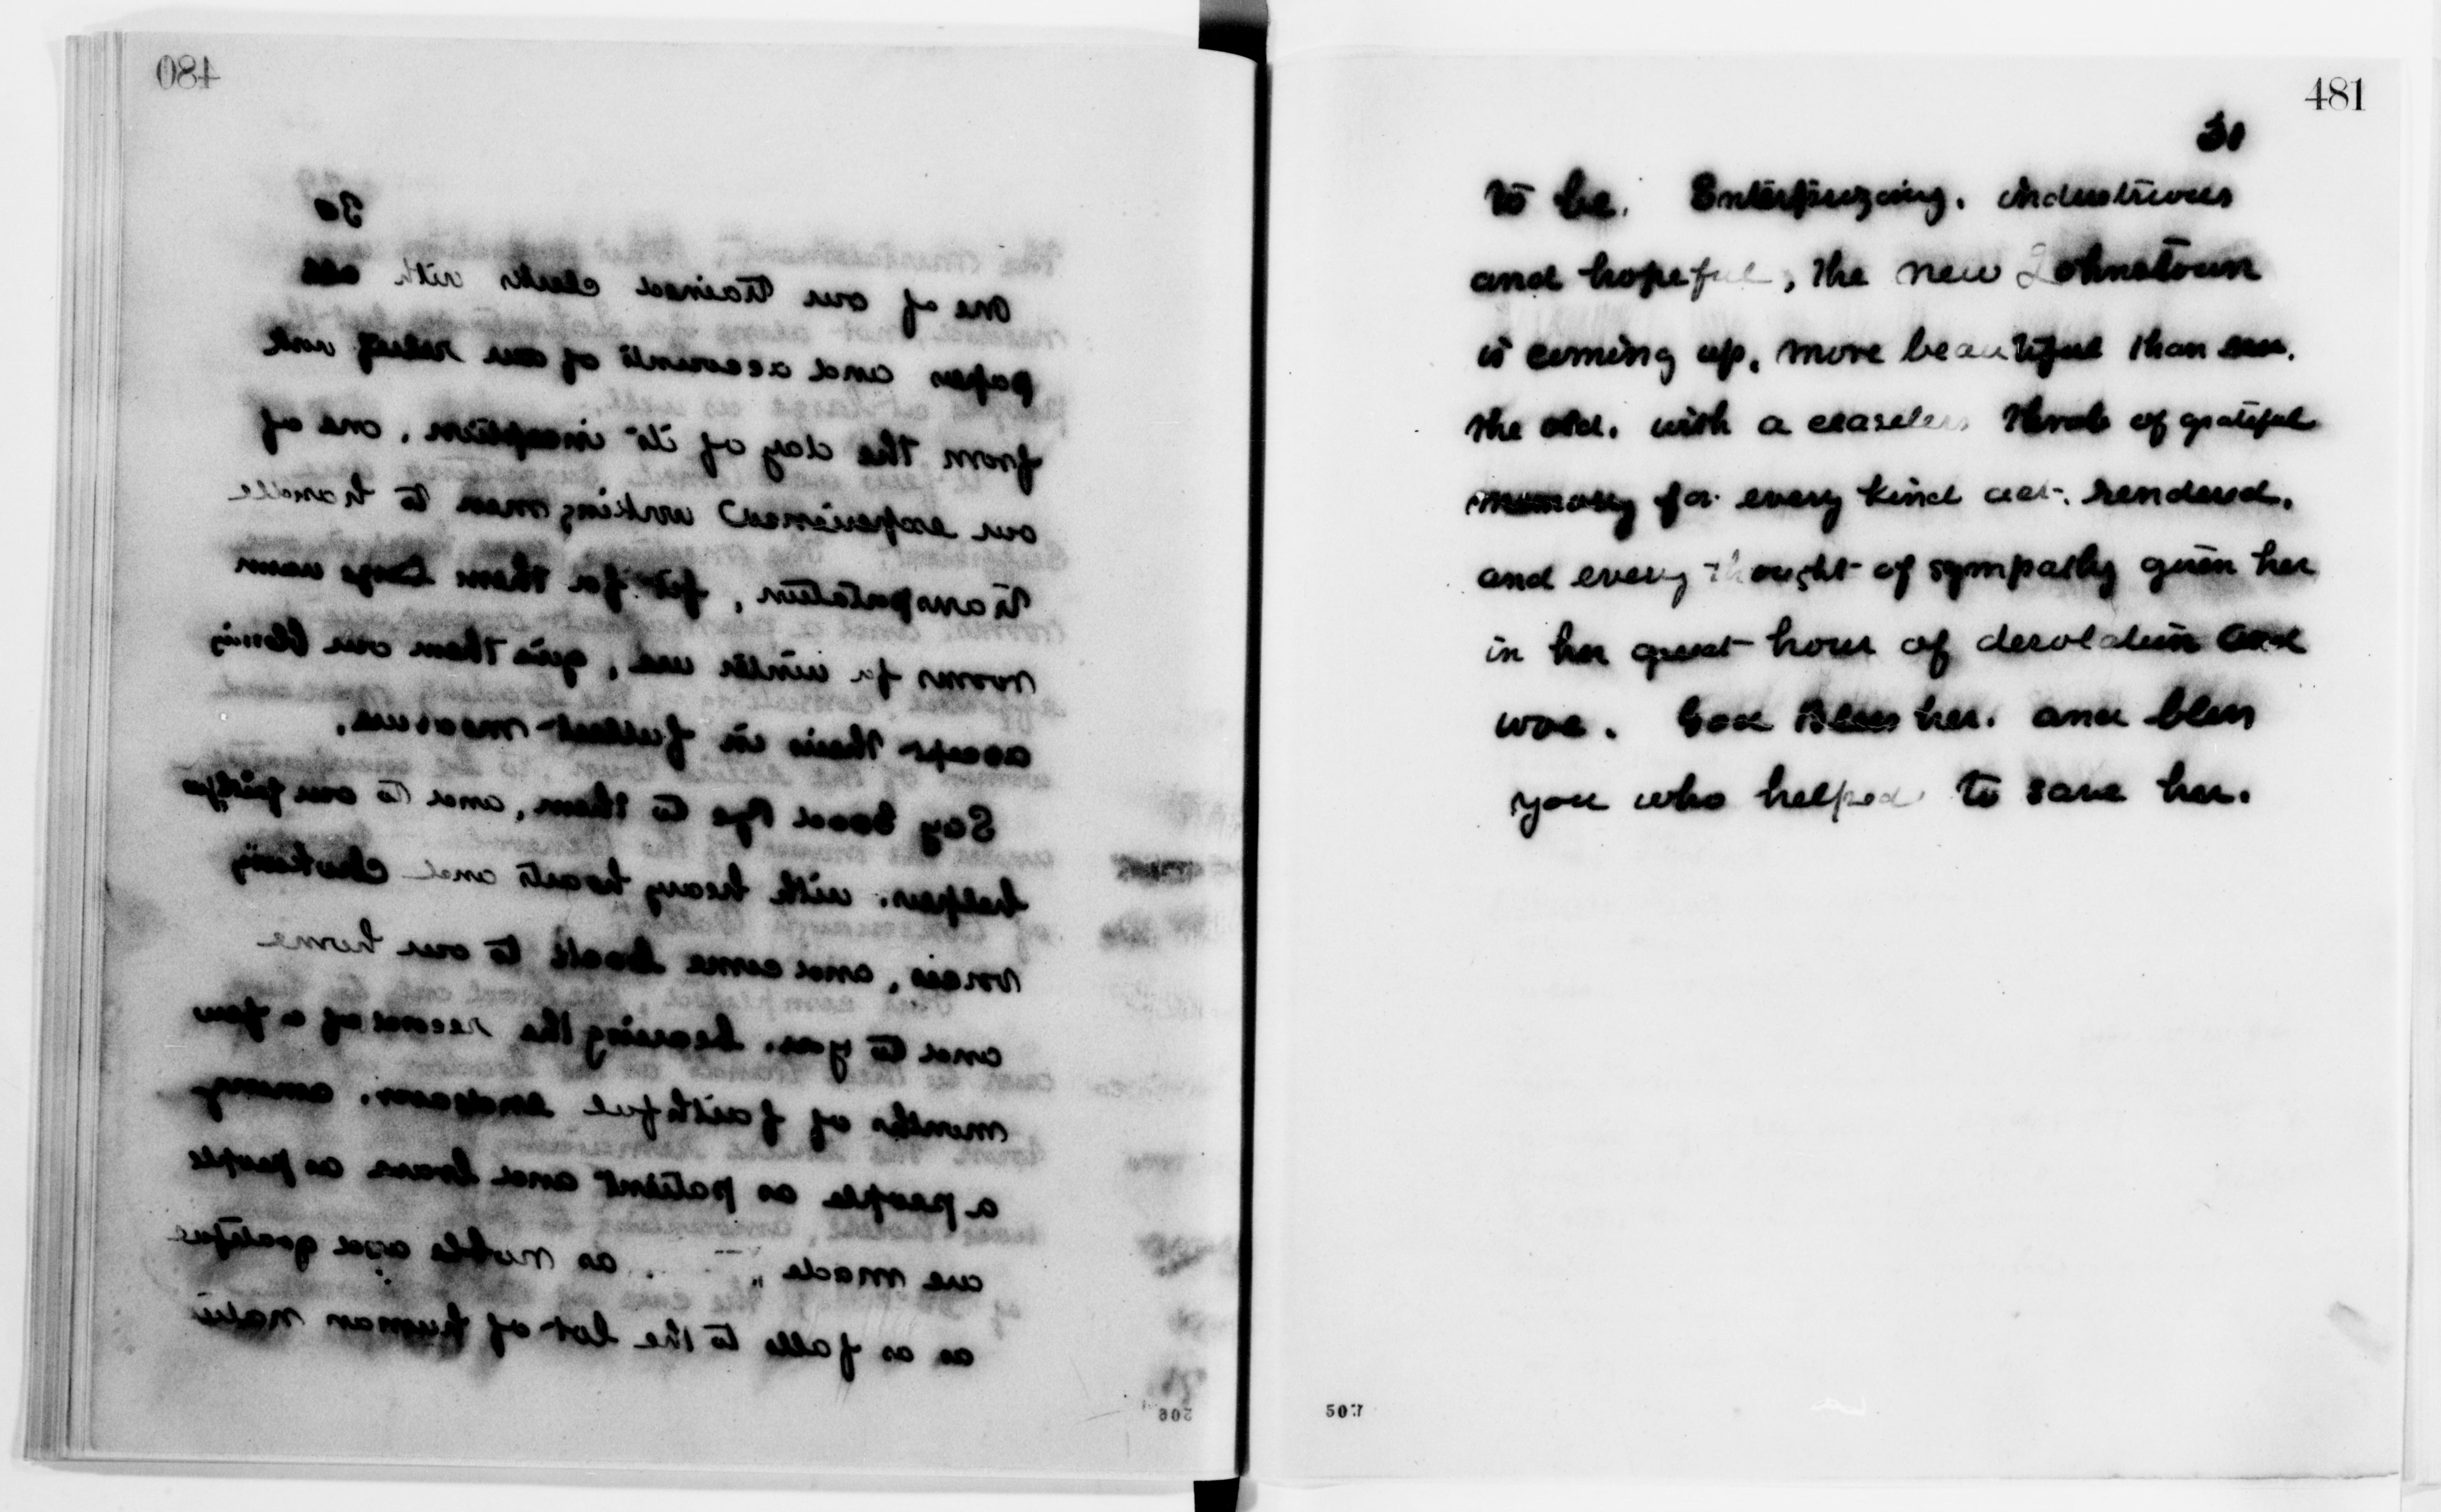 480
30
one of our trained clerks with all
papers and accounts of our relief work
from the day of its inception, one of
our experienced working men to handle
transportation, fit for them large warm
rooms for winter use, give them our blessing
accept theirs in fullest measure,
Say Good Bye to them, and to our faithful
helpers, with heavy hearts and choking
voices, and come back to our home
and to you, bearing the record of a few
months of faithful endeavor, among
a people as patient and brave as people
are made, as noble and grateful
as as falls to the lot of human nature
506
481
31
to be. Enterprizing, industrious
and hopeful, the new Johnstown
is coming up, more beautiful than
the old, with a ceaseless throb of grateful
memory for every kind act rendered,
and every thought of sympathy given her
in her great hour of desolation and
woe. God Bless her, and bless
you who helped to save her.
507